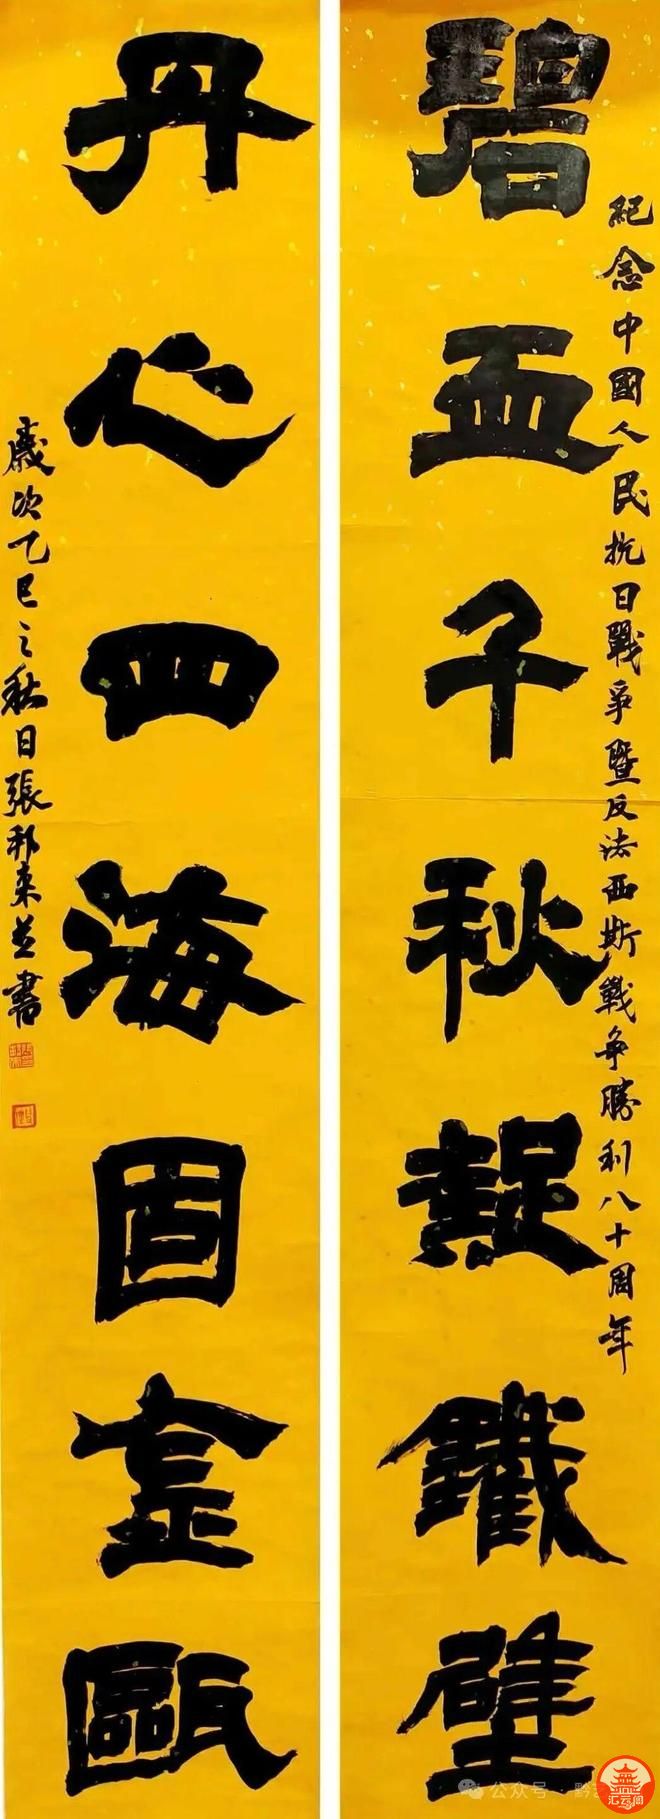 紀念中國人民抗日戰爭暨反法西斯戰爭勝利八十周年
碧血千秋凝鐵壁
丹心四海固金甌
歲次乙巳之秋日張邦並書
公众号 · 黔
汇云阁